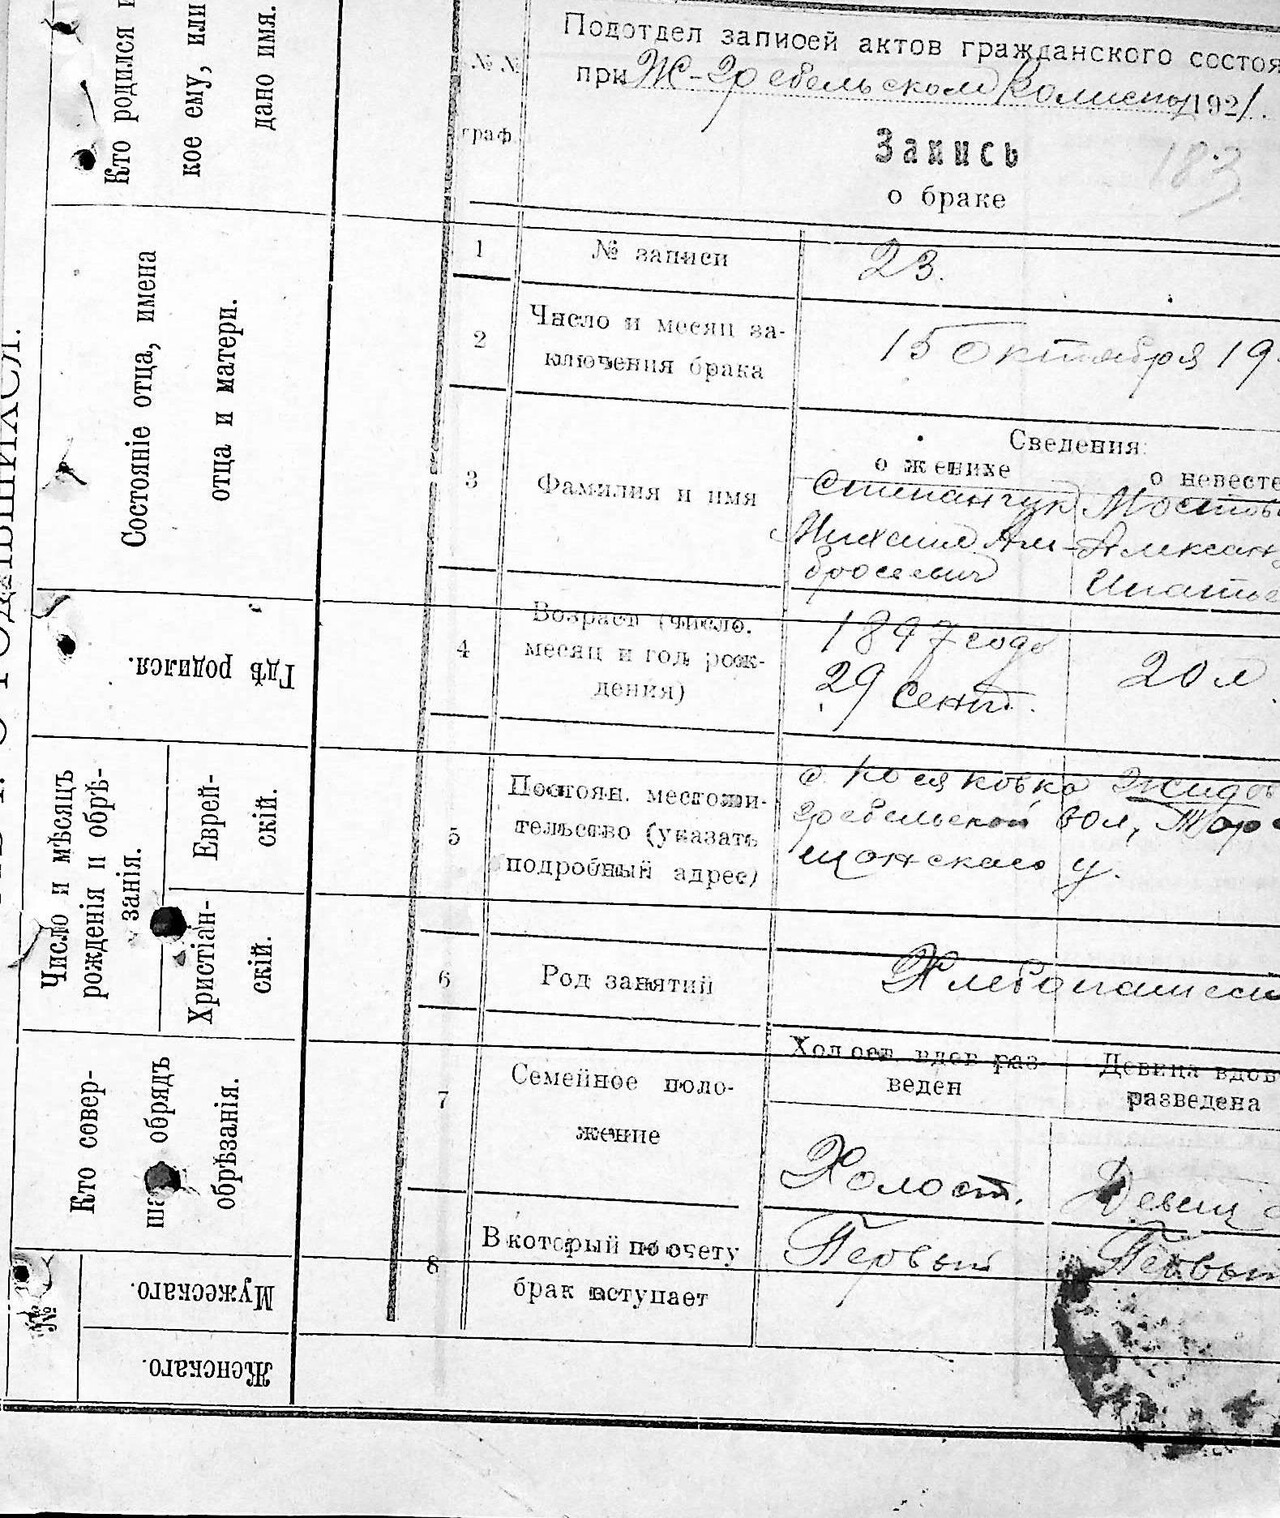 Кто родился и
кое ему, или
дано имя.
Состояніе отца, имена
отца и матери.
Гдѣ родился.
Число и мѣсяцъ
рожденія и обрѣ-
занія.
Еврей-
скій.
Христіан-
скій.
Кто совер-
обрядъ
обрѣзанія.
№
Мужескаго.
Женскаго.
№ №
граф
Подотдел записей актов гражданского состоя
при Ж-Гребельском Волисп 1921.
Запись
183
о браке
1 № записи 23.
2 Число и месяц за-
ключения брака
15 Октября 19
3 Фамилия и имя
Сведения:
о женихе
о невесте
Степанчук
Михаил Ам-
бросиевич
Мостов
Александ
Игнатье
4 Возраст (число.
месяц и год рож-
дения)
1897 года
29 Сент.
20 л
5 Постоян. местожи-
тельство (указать
подробный адрес)
с. Косяковка Жидов
гребельской вол, Тара
щанского у.
6 Род занятий
Хлебопашес
7 Семейное поло-
жение
Холост. вдов раз-
веден
Девица вдов
разведена
Холост.
Девица
8 В который по счету
брак вступает
Первый
Первый